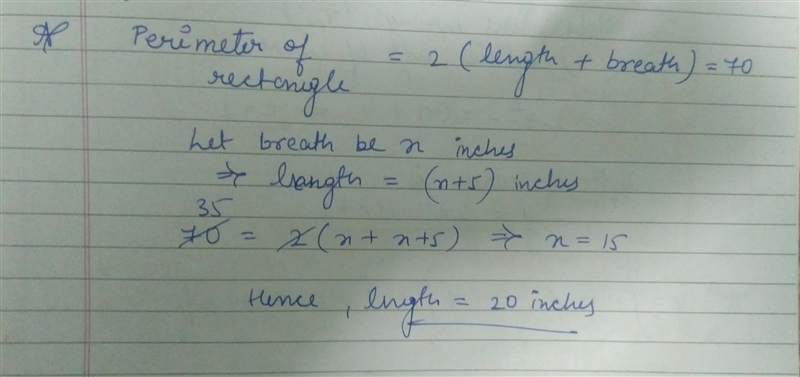 Perimeter of rectangle = 2 (length + breath) = 70
Let breath be x inches
⇒ length = (x+5) inches
35
70 = 2 (x + x+5) ⇒ x = 15
Hence, lngth = 20 inches